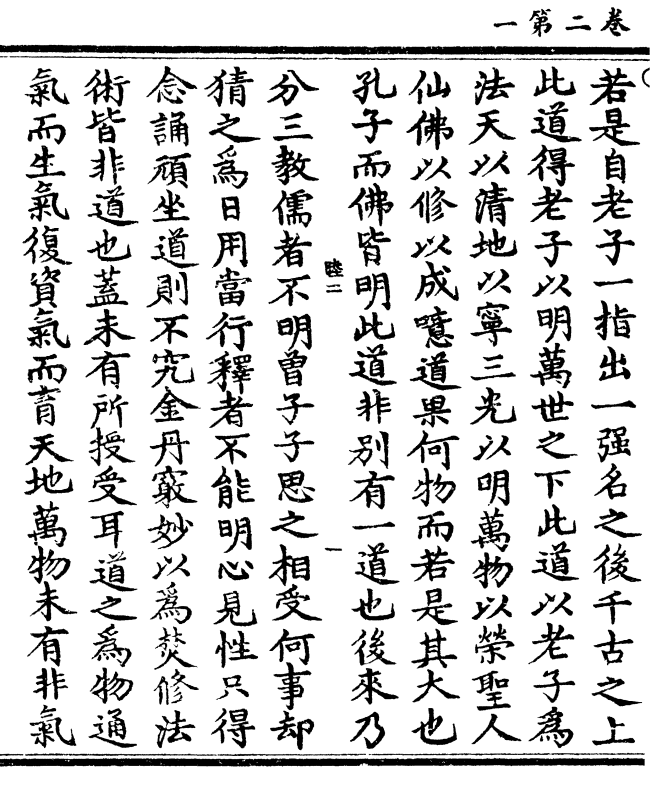 卷二第一
若是自老子一指出一强名之後千古之上
此道得老子以明萬世之下此道以老子爲
法天以清地以寧三光以明萬物以榮聖人
仙佛以修以成噫道果何物而若是其大也
孔子而佛皆明此道非别有一道也後來乃
陸二
一
分三教儒者不明曾子子思之相受何事却
猜之爲日用當行釋者不能明心見性只得
念誦頑坐道則不究金丹竅妙以爲焚修法
術皆非道也蓋未有所授受耳道之爲物通
氣而生氣復資氣而育天地萬物未有非氣